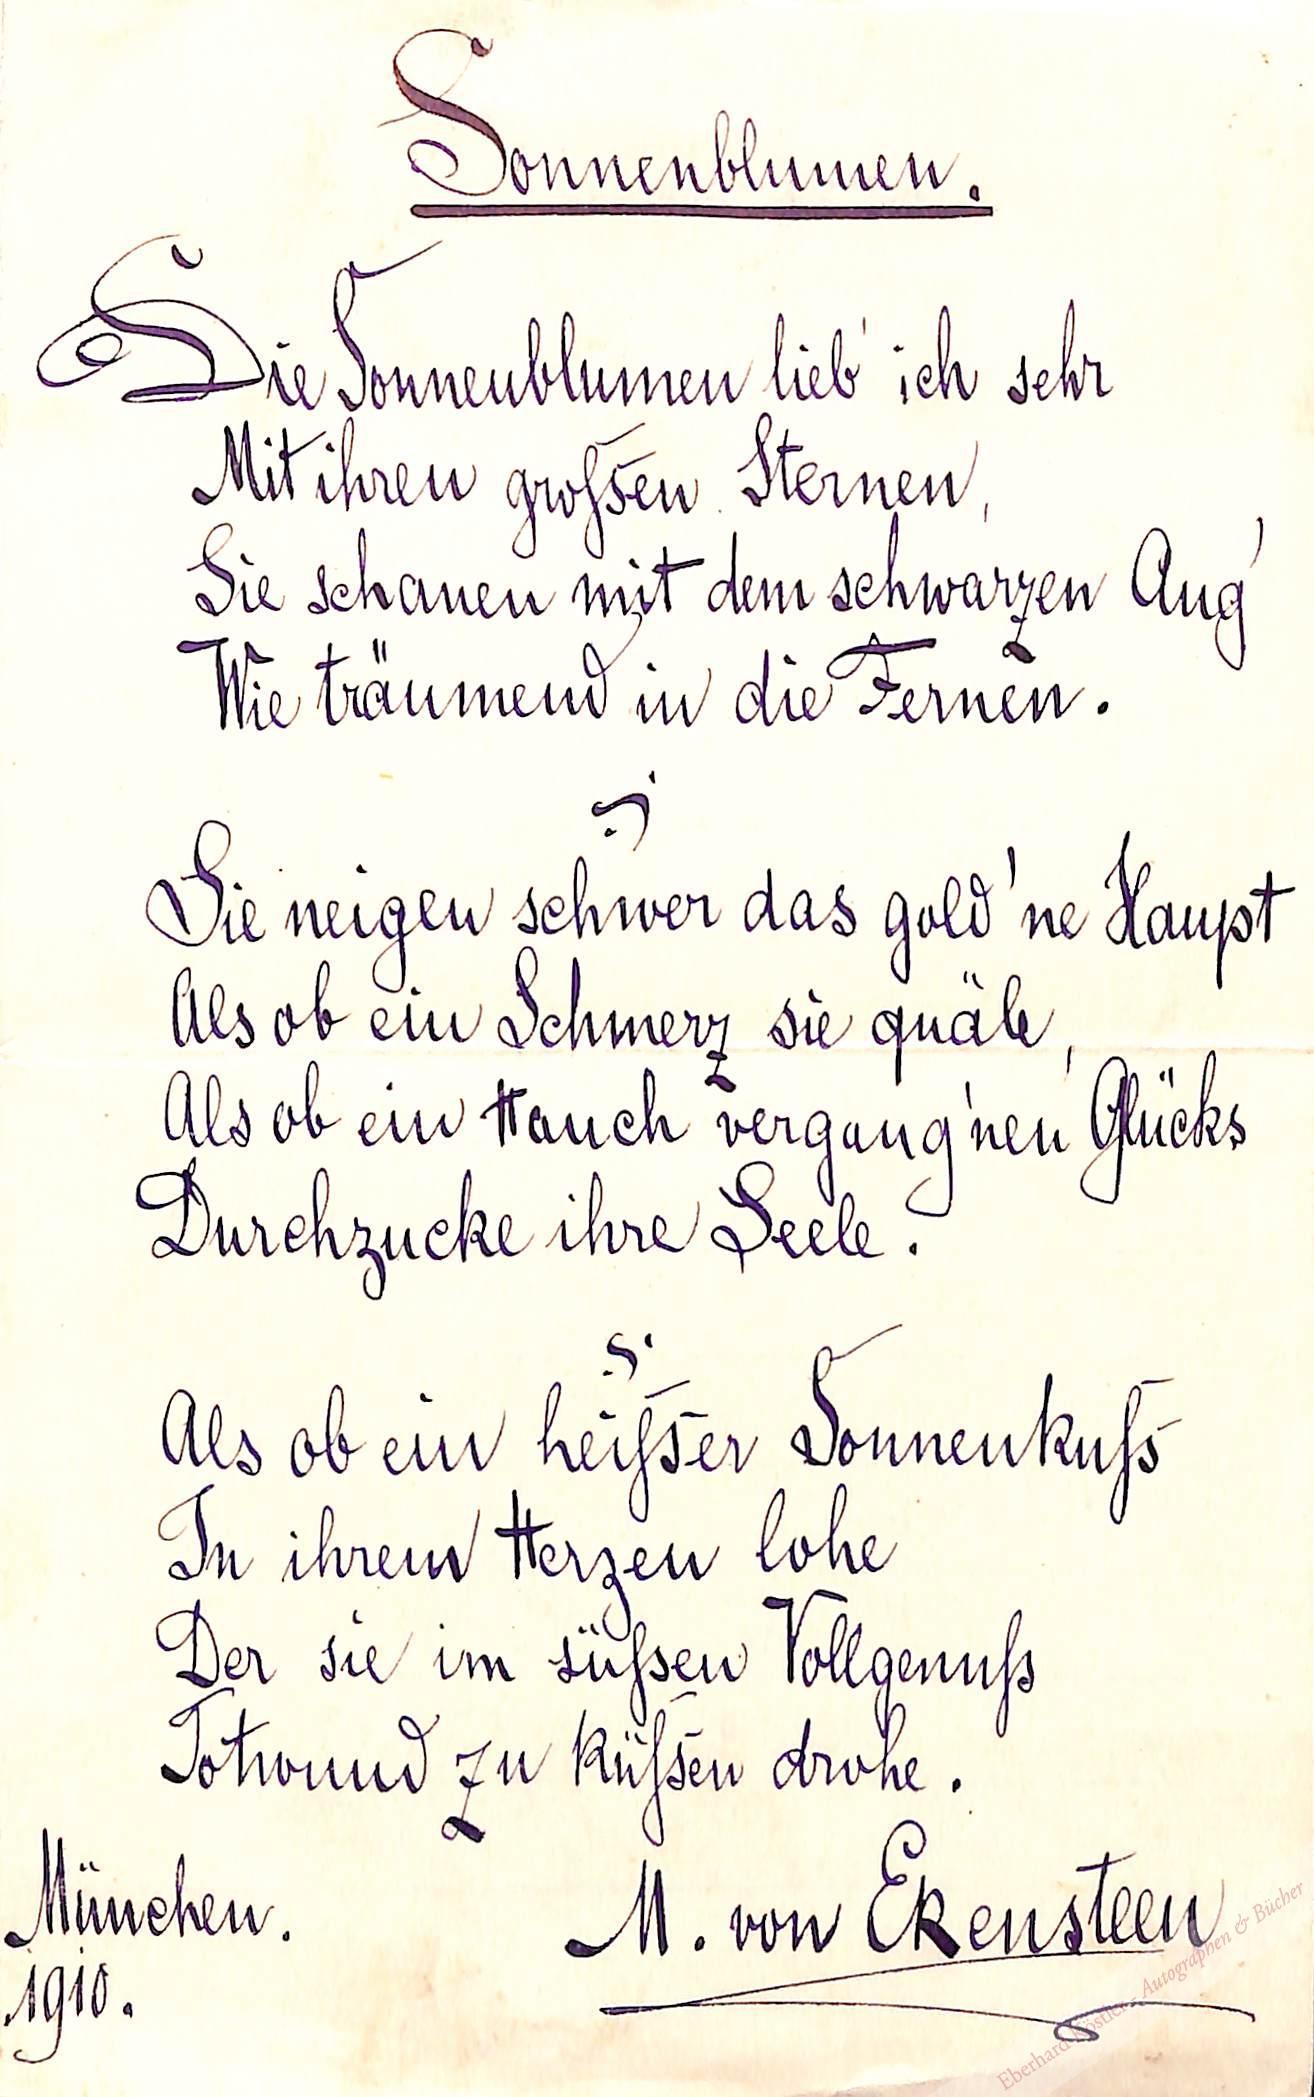 Sonnenblumen.
Die Sonnenblumen lieb' ich sehr
Mit ihren großen Sternen,
Sie schauen mit dem schwarzen Aug'
Wie träumend in die Fernen.
Sie neigen schwer das gold'ne Haupt
Als ob ein Schmerz sie quäle,
Als ob ein Hauch vergang'nen Glücks
Durchzucke ihre Seele.
Als ob ein heißer Sonnenkuß
In ihrem Herzen lohe
Der sie im süßen Vollgenuß
Totwund zu küßen drohe.
München.
1910.
M. von Ekensteen
Eberhard Köstler - Autographen & Bücher